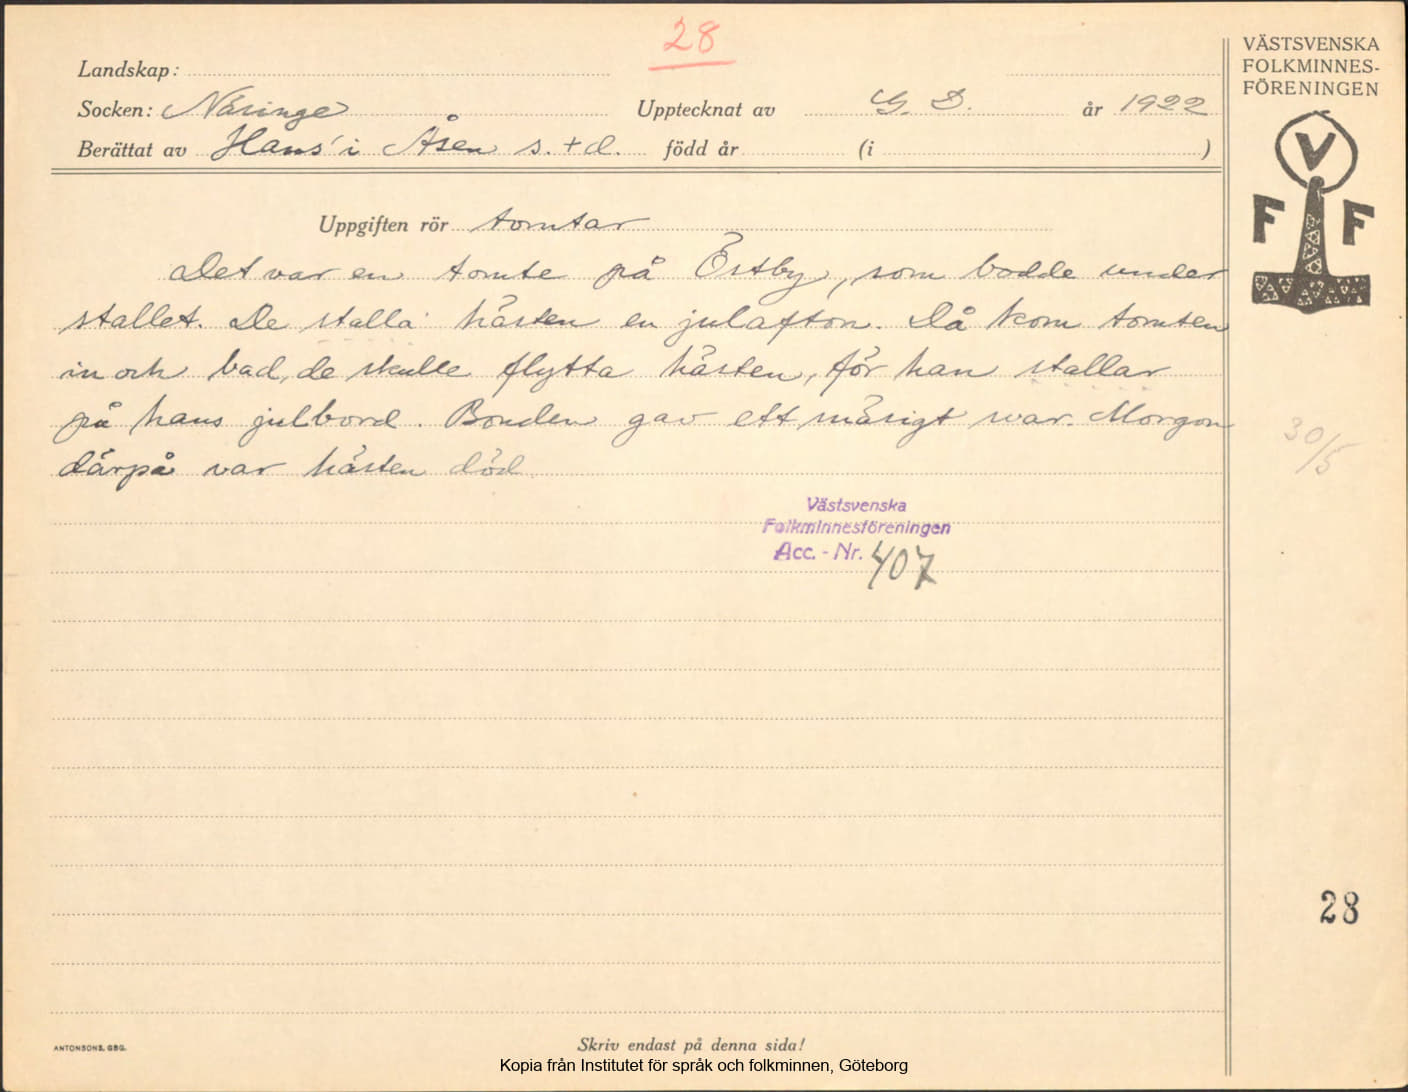 28
VÄSTSVENSKA
FOLKMINNES-
FÖRENINGEN
Landskap:
Socken: Näsinge Upptecknat av G. D. år 1922
Berättat av Hans i Åsen s. + d. född år (i )
V
F F
Uppgiften rör tomtar
Det var en tomte på Östby, som bodde under
stallet. De stalla hästen en julafton. Då kom tomten
in och bad, de skulle flytta hästen, för han stallar
på hans julbord. Bonden gav ett mäsigt svar. Morgon
därpå var hästen död.
30/5
Västsvenska
Folkminnesföreningen
Acc. - Nr. 407
28
ANTONSONS, GBG.
Skriv endast på denna sida!
Kopia från Institutet för språk och folkminnen, Göteborg